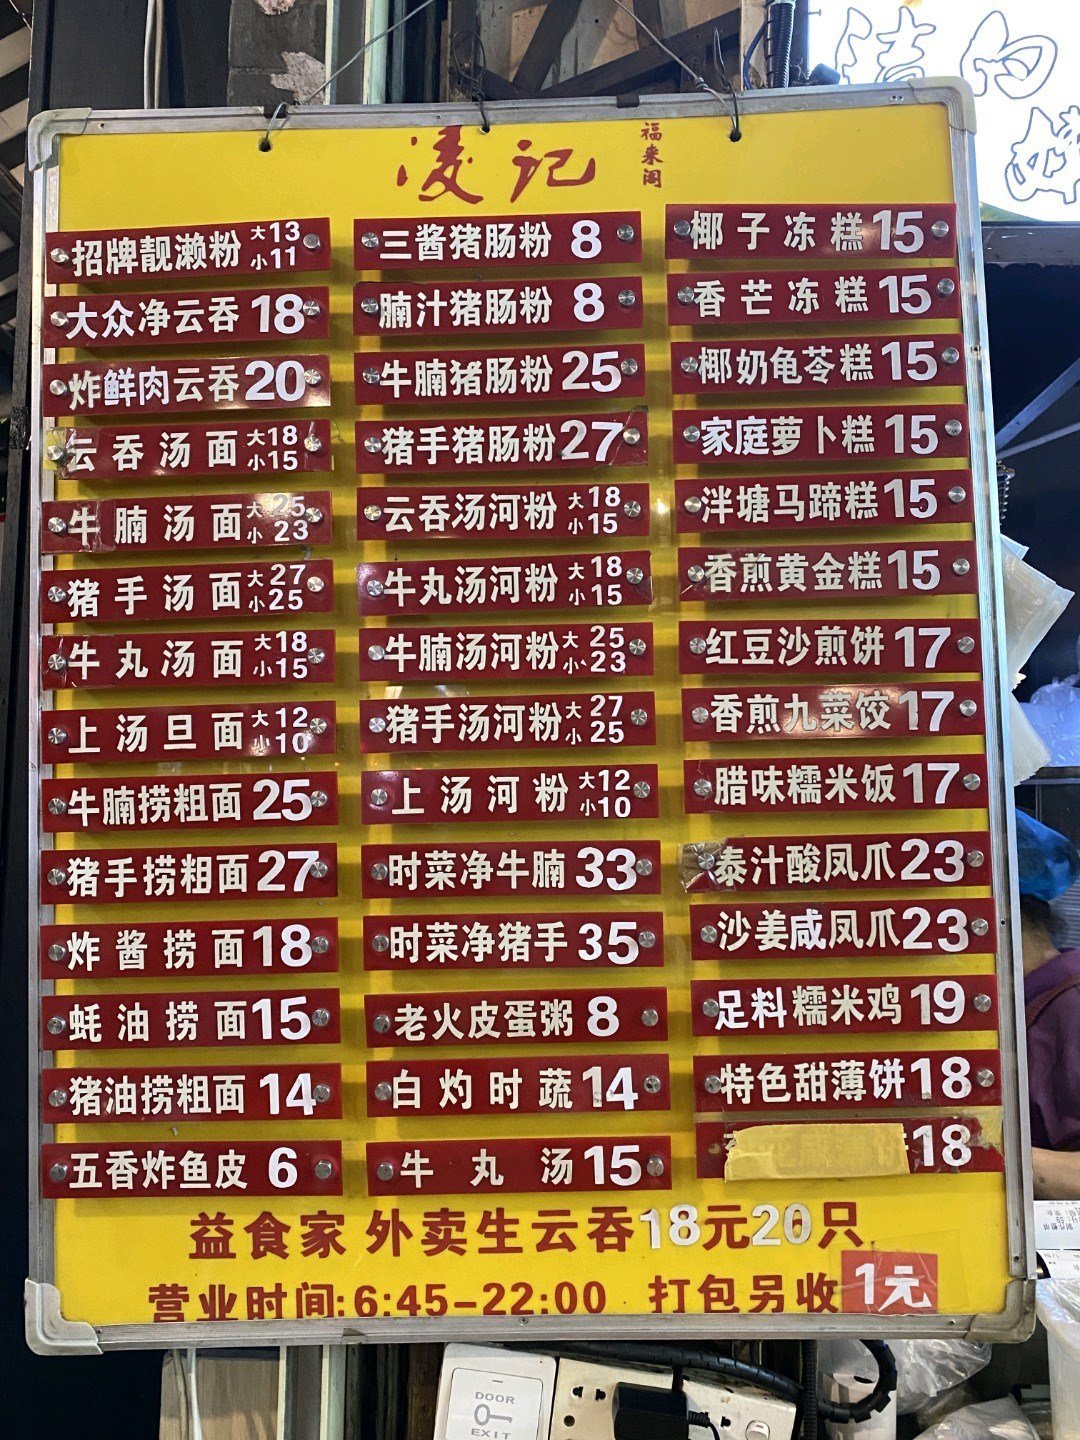 凌记
福来阁
招牌靓濑粉 大13 小11
大众净云吞 18
炸鲜肉云吞 20
云吞汤面 大18 小15
牛腩汤面 大25 小23
猪手汤面 大27 小25
牛丸汤面 大18 小15
上汤旦面 大12 小10
牛腩捞粗面 25
猪手捞粗面 27
炸酱捞面 18
蚝油捞面 15
猪油捞粗面 14
五香炸鱼皮 6
三酱猪肠粉 8
腩汁猪肠粉 8
牛腩猪肠粉 25
猪手猪肠粉 27
云吞汤河粉 大18 小15
牛丸汤河粉 大18 小15
牛腩汤河粉 大25 小23
猪手汤河粉 大27 小25
上汤河粉 大12 小10
时菜净牛腩 33
时菜净猪手 35
老火皮蛋粥 8
白灼时蔬 14
牛丸汤 15
椰子冻糕 15
香芒冻糕 15
椰奶龟苓糕 15
家庭萝卜糕 15
泮塘马蹄糕 15
香煎黄金糕 15
红豆沙煎饼 17
香煎九菜饺 17
腊味糯米饭 17
泰汁酸凤爪 23
沙姜咸凤爪 23
足料糯米鸡 19
特色甜薄饼 18
18
益食家 外卖生云吞18元20只
营业时间:6:45-22:00 打包另收1元
DOOR
EXIT